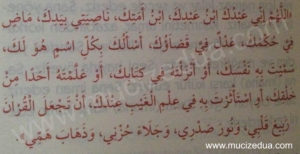 "اللَّهُمَّ إِنِّي عَبْدُكَ ابْنُ عَبْدِكَ، ابْنُ أَمَتِكَ، نَاصِيَتِي بِيَدِكَ، مَاضٍ
فِيَّ حُكْمُكَ، عَدْلٌ فِيَّ قَضَاؤُكَ، أَسْأَلُكَ بِكُلِّ اسْمٍ هُوَ لَكَ،
سَمَّيْتَ بِهِ نَفْسَكَ، أَوْ أَنْزَلْتَهُ فِي كِتَابِكَ، أَوْ عَلَّمْتَهُ أَحَداً مِنْ
خَلْقِكَ، أَوِ اسْتَأْثَرْتَ بِهِ فِي عِلْمِ الْغَيْبِ عِنْدَكَ، أَنْ تَجْعَلَ الْقُرْآنَ
رَبِيعَ قَلْبِي، وَنُورَ صَدْرِي، وَجَلَاءَ حُزْنِي، وَذَهَابَ هَمِّي".
www.mucizedua.com